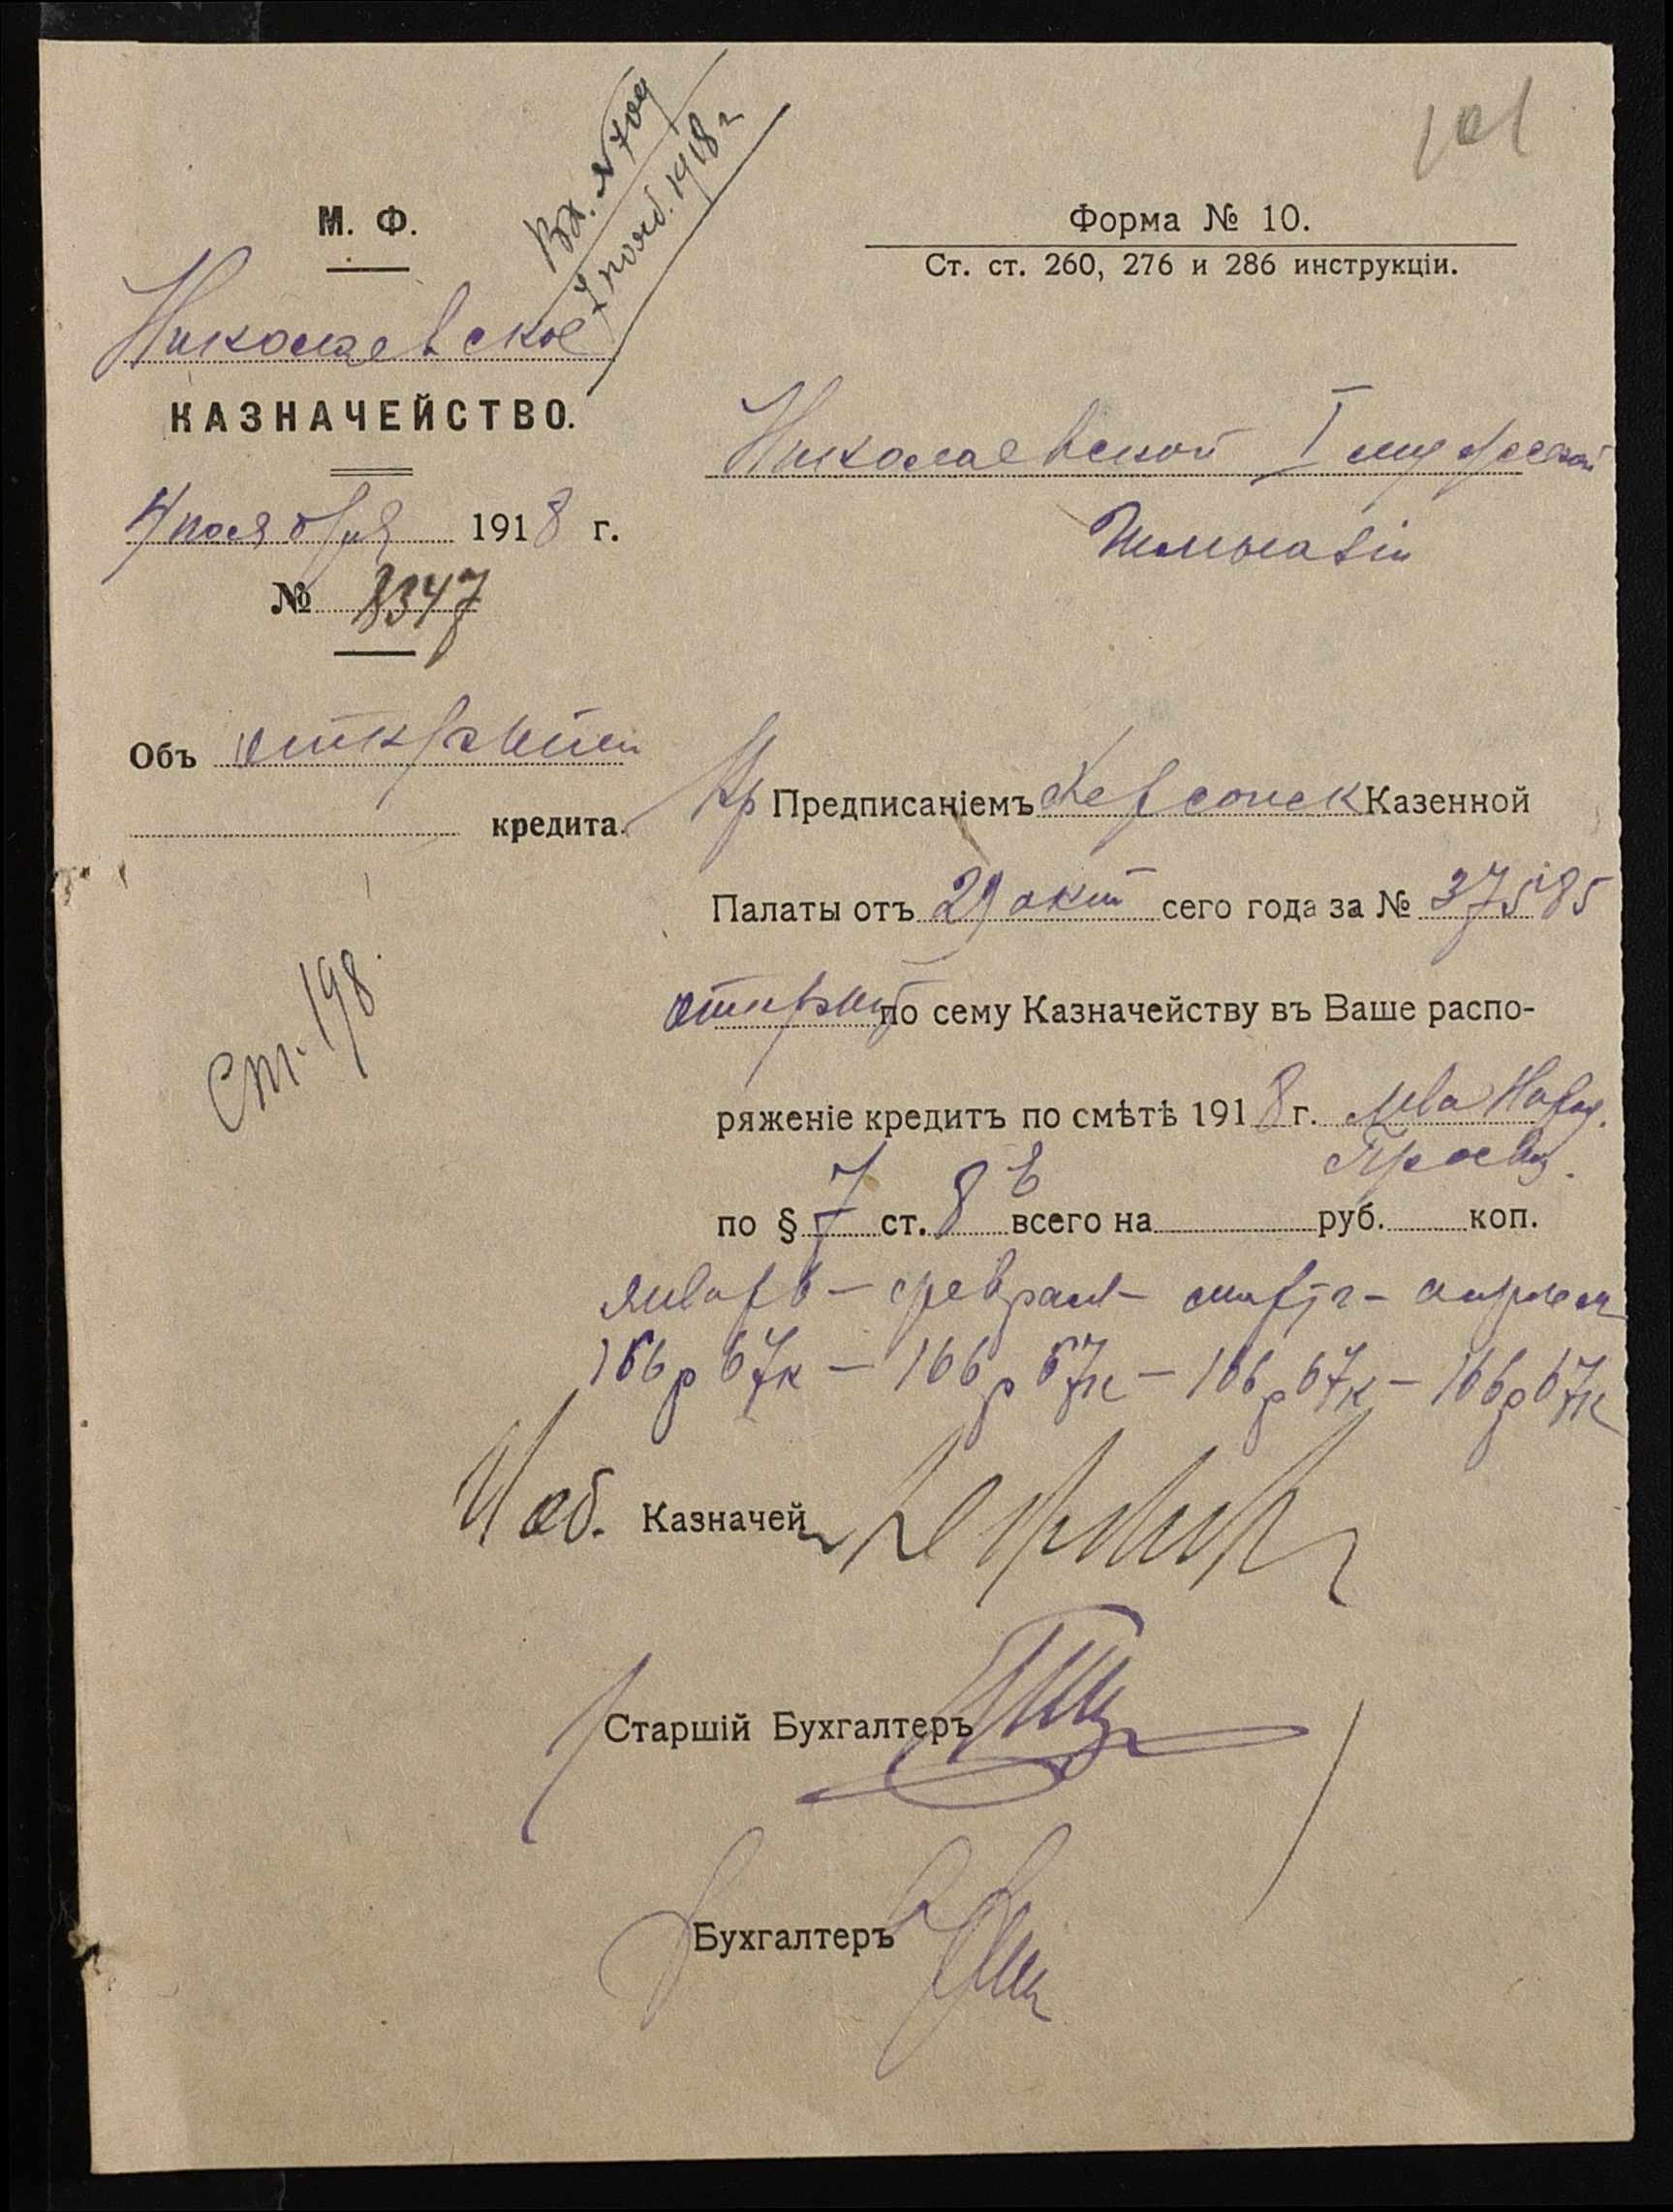 101
Вх. № 709
7 нояб. 1918 г
М. Ф.
Николаевское
КАЗНАЧЕЙСТВО.
4 ноября 1918 г.
№ 8347
Форма № 10.
Ст. ст. 260, 276 и 286 инструкціи.
Николаевской I мужеской
Гимназіи
Объ открытіи
кредита.
Ст. 198.
Предписаніемъ Херсонск Казенной
Палаты отъ 29 окт сего года за № 37585
открыт по сему Казначейству въ Ваше распо-
ряженіе кредитъ по смѣтѣ 1918 г. М-ва Народ.
Просвѣщ.
по § 7 ст. 8 в всего на руб. коп.
январь – февраль – марта – апрель
166 р 67 к – 166 р 67 к – 166 р 67 к – 166 р 67 к
И об. Казначей
Старшій Бухгалтеръ
Бухгалтеръ